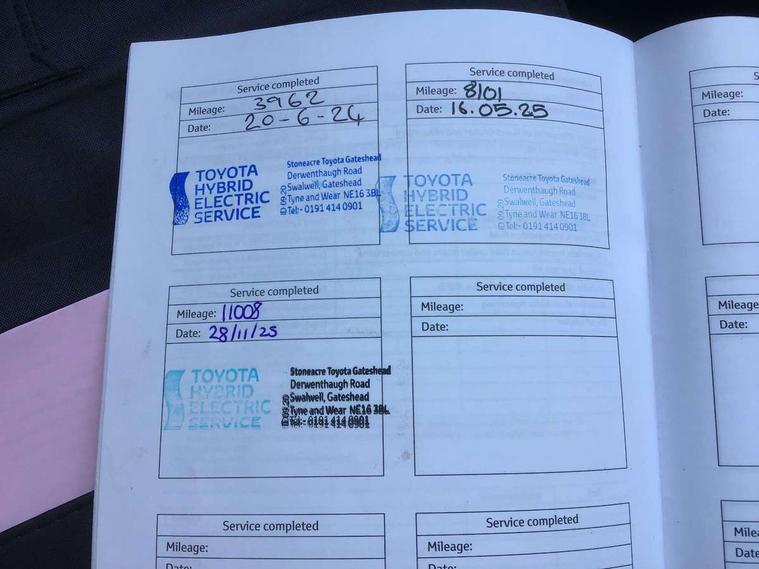 Service completed
Mileage: 3962
Date: 20-6-24
TOYOTA
HYBRID
ELECTRIC
SERVICE
Stoneacre Toyota Gateshead
Derwenthaugh Road
Swalwell, Gateshead
Tyne and Wear NE16 3BL
Tel:- 0191 414 0901
Service completed
Mileage: 8101
Date: 16.05.25
TOYOTA
HYBRID
ELECTRIC
SERVICE
Stoneacre Toyota Gateshead
Derwenthaugh Road
Swalwell, Gateshead
Tyne and Wear NE16 3BL
Tel:- 0191 414 0901
Service completed
Mileage: 11008
Date: 28/11/25
TOYOTA
HYBRID
ELECTRIC
SERVICE
Stoneacre Toyota Gateshead
Derwenthaugh Road
Swalwell, Gateshead
Tyne and Wear NE16 3BL
Tel:- 0191 414 0901
Service completed
Mileage:
Date:
Service completed
Mileage:
Service completed
Mileage:
Mileage:
Date:
Mileage
Date:
Mile
Date